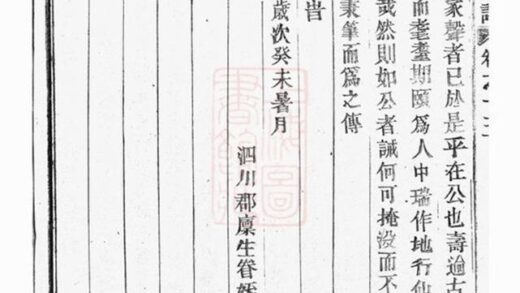 譜 卷之十三
家聲者已於是乎在公也壽逾古
而耄耋期頤爲人中瑞作地行仙
哉然則如公者誠何可掩没而不
秉筆而爲之傳
旹
歲次癸未暑月
泗川郡廩生眷姪